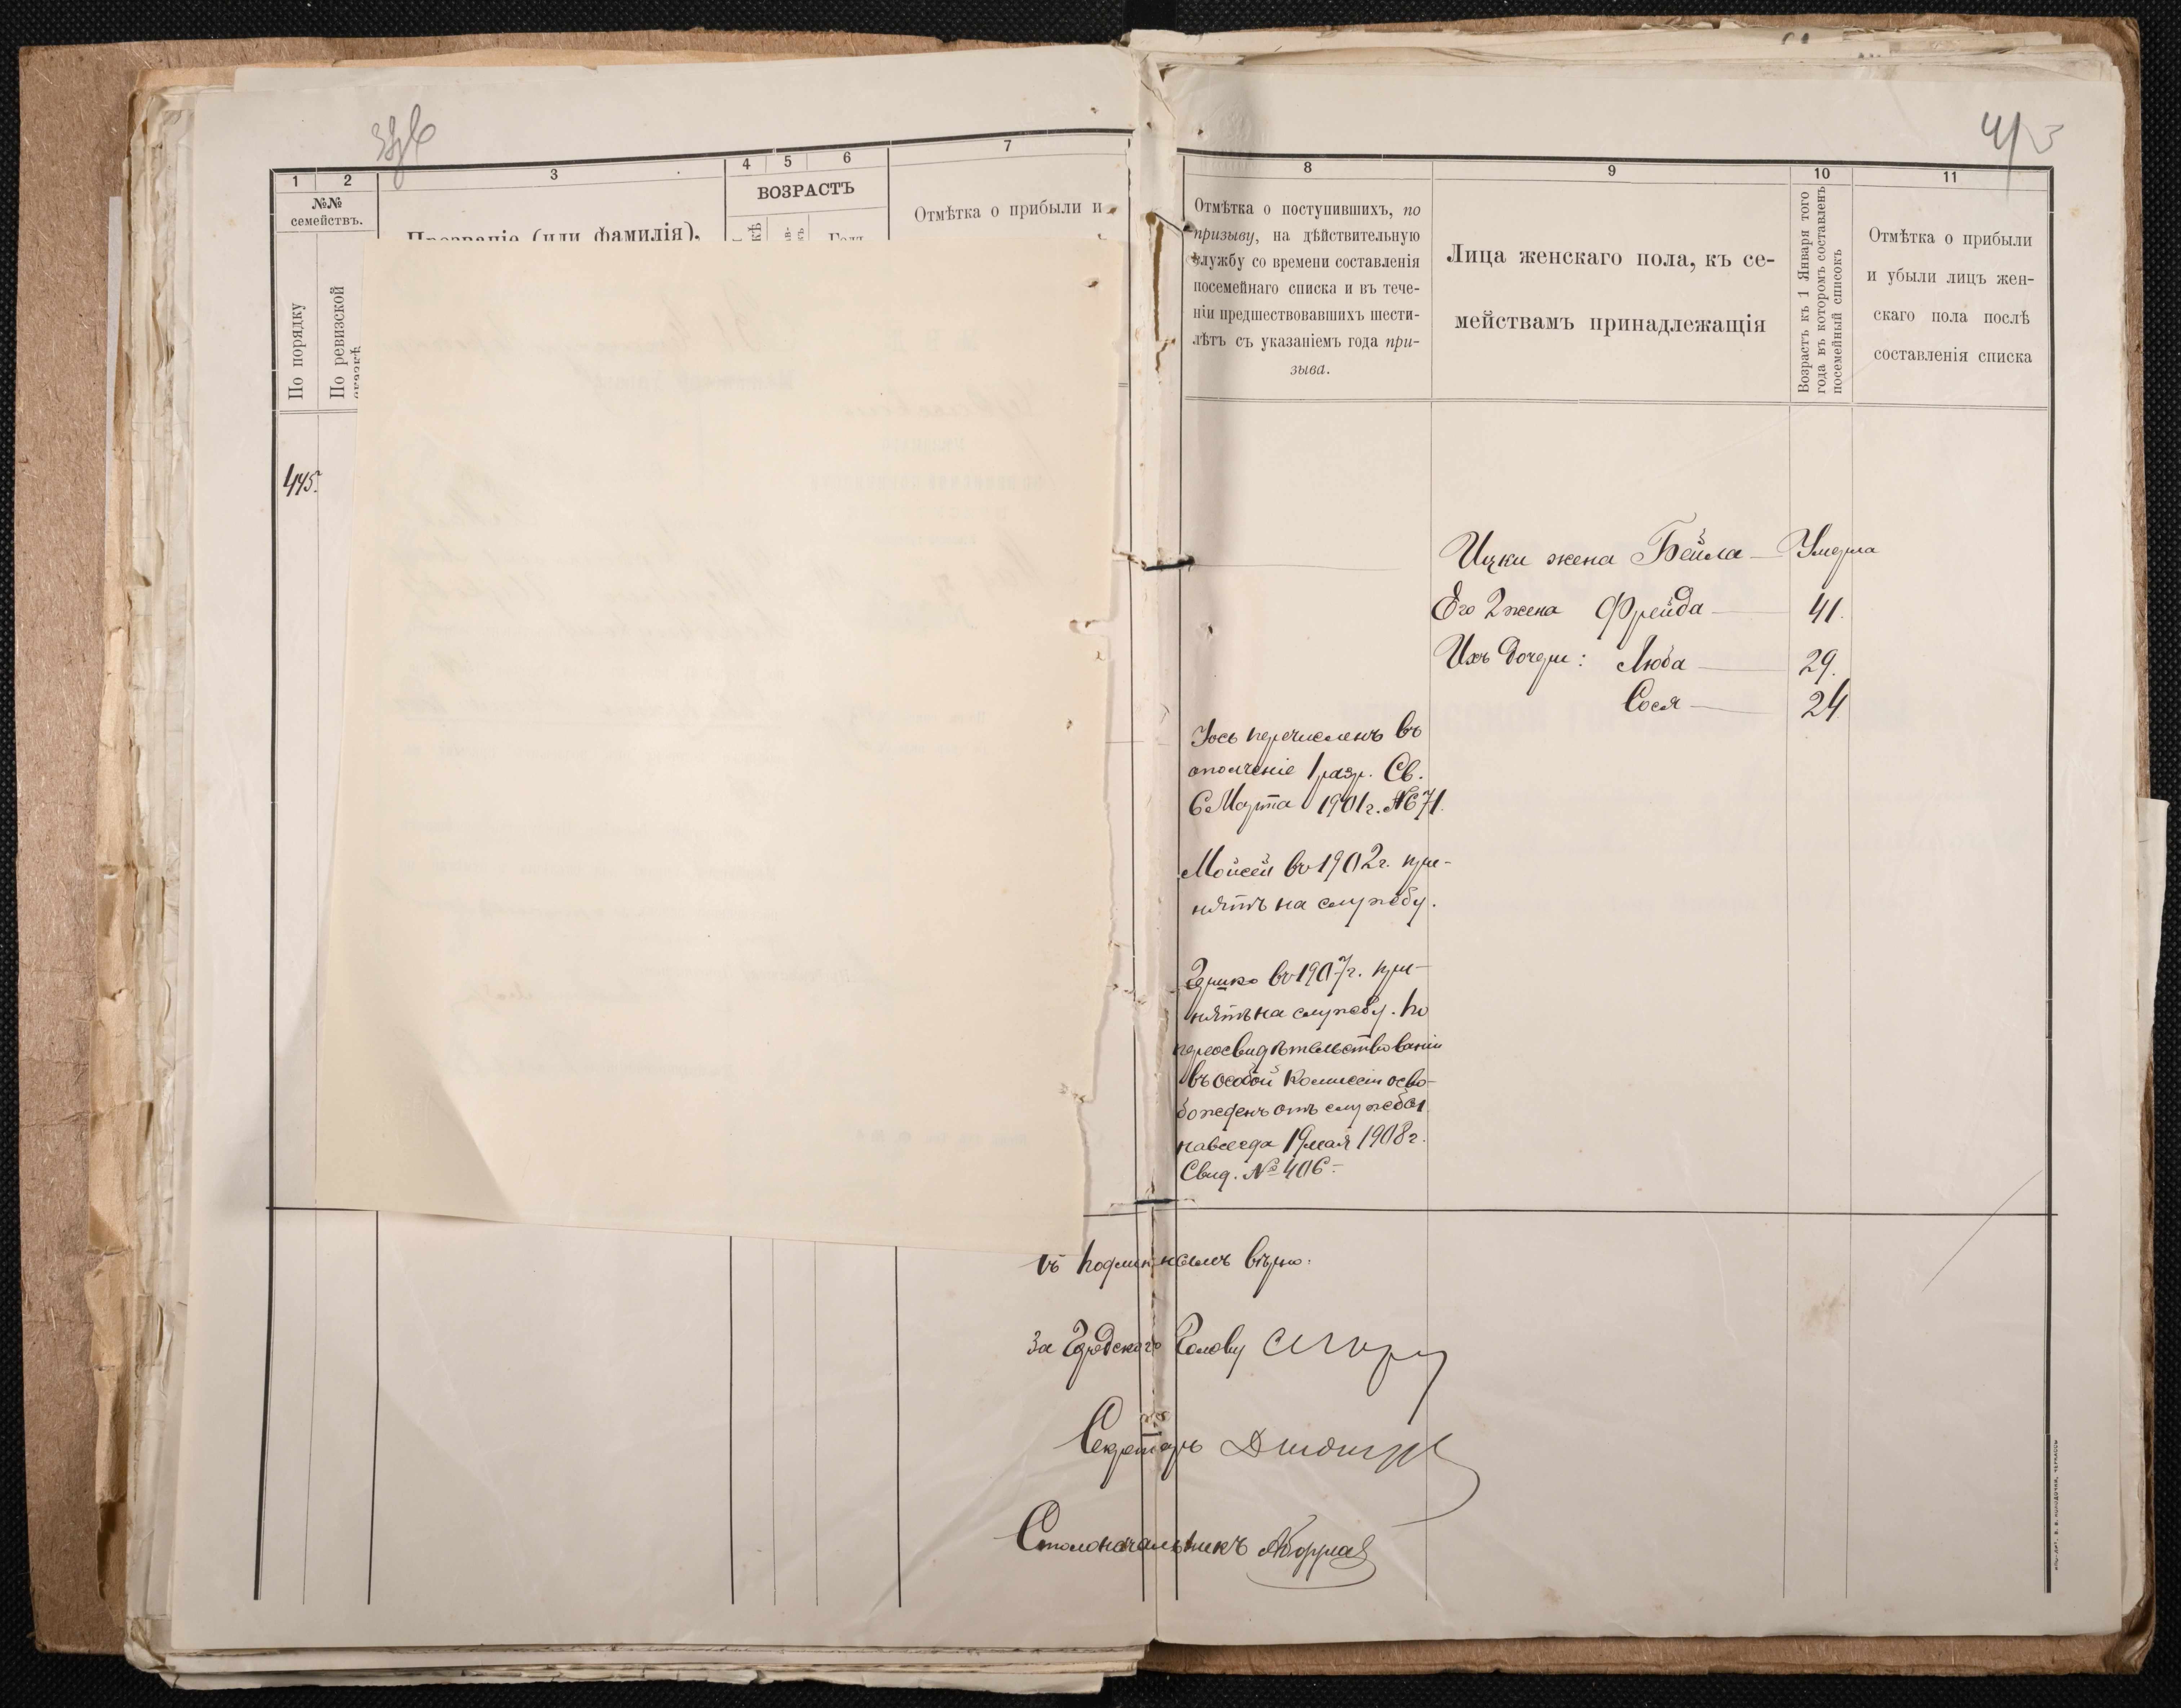 413
1
2
3
4
5
6
7
№№
семействъ.
ВОЗРАСТЪ
Отмѣтка о прибыли и
Прозваніе (или фамилія),
По порядку
По ревизской
сказкѣ
445.
8
9
10
11
Отмѣтка о поступившихъ, по
призыву, на дѣйствительную
службу со времени составленія
посемейнаго списка и въ тече-
ніи предшествовавшихъ шести-
лѣтъ съ указаніемъ года при-
зыва.
Лица женскаго пола, къ се-
мействамъ принадлежащія
Возрастъ къ 1 Января того
года въ которомъ составленъ
посемейный списокъ
Отмѣтка о прибыли
и убыли лицъ жен-
скаго пола послѣ
составленія списка
Ицки жена Бейла — Умерла
Его 2 жена Фрейда — 41.
Ихъ дочери: Люба — 29.
Сося — 24
Іось перечисленъ въ
ополченіе 1 разр. Св.
6 Марта 1901 г. № 671.
Мойсей въ 1902 г. при-
нятъ на службу.
въ 1907 г. при-
нятъ на службу. По
переосвидѣтельствованіи
въ особой Комиссіи осво-
божденъ отъ службы
навсегда 19 мая 1908 г.
Свид. № 406 -
Съ подлиннымъ вѣрно.
За Городского Голову
Секретарь
Столоначальникъ